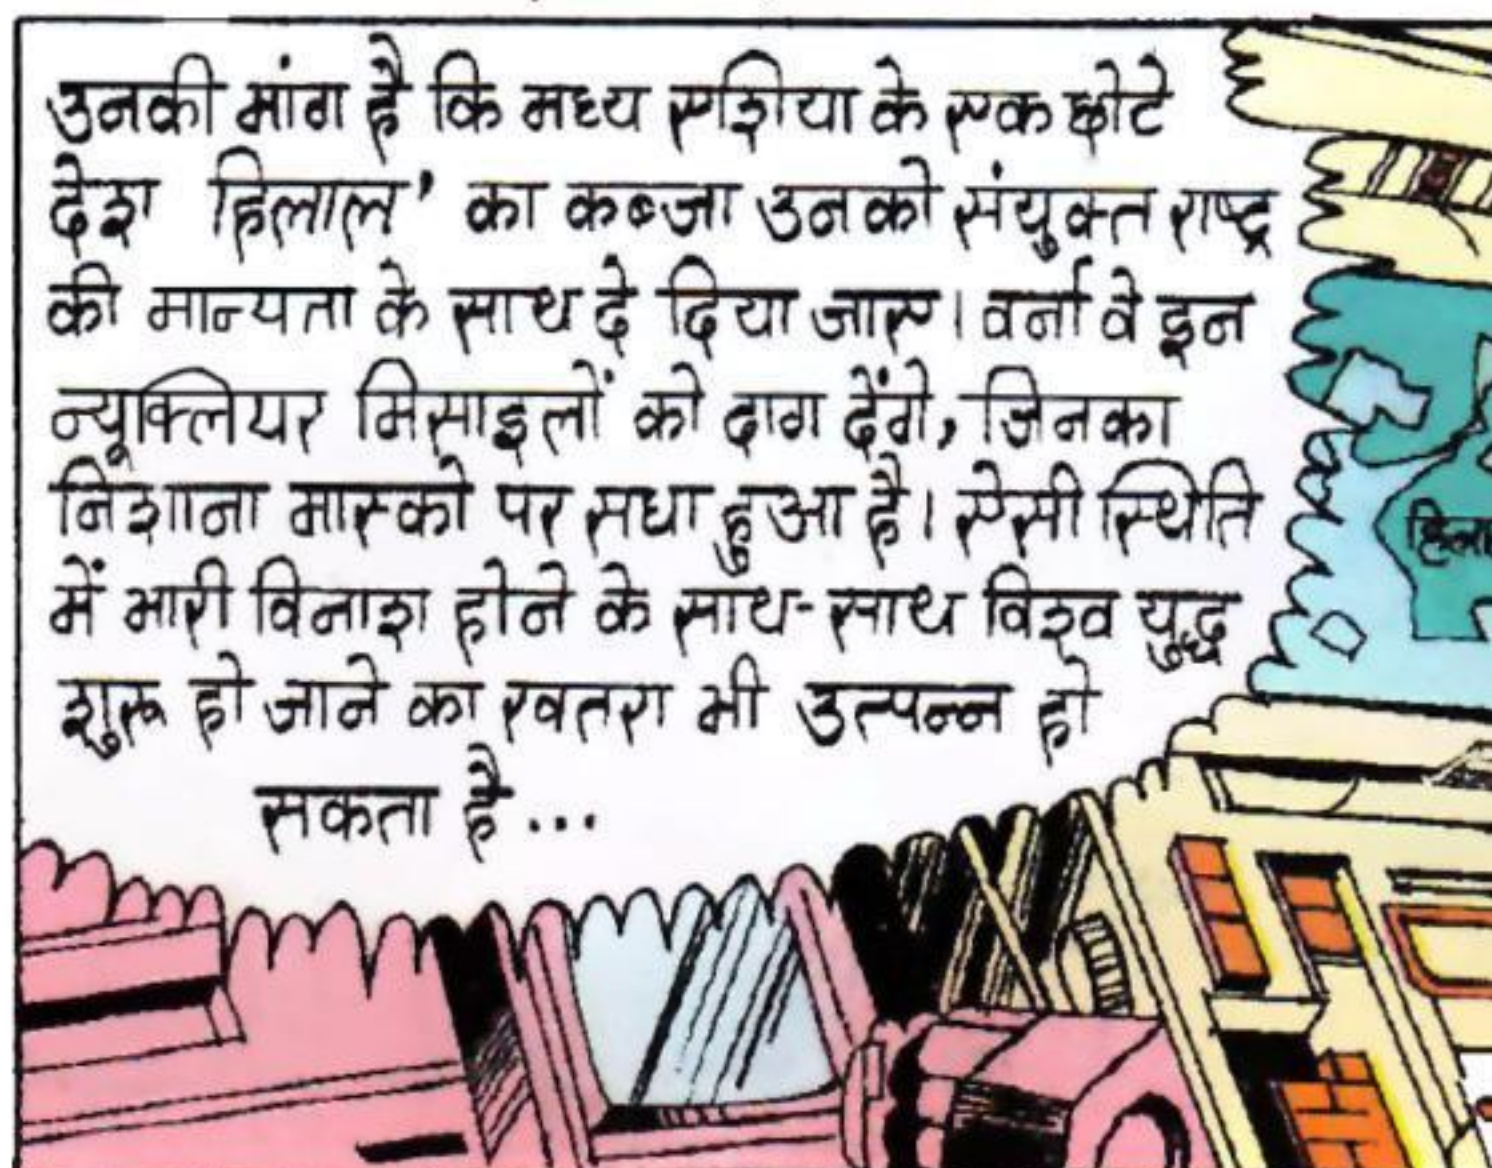 उनकी मांग है कि मध्य एशिया के एक छोटे
देश हिलाल' का कब्जा उनको संयुक्त राष्ट्र
की मान्यता के साथ दे दिया जाए। वर्ना वे इन
न्यूक्लियर मिसाइलों को दाग देंगे, जिनका
निशाना मास्को पर सधा हुआ है। ऐसी स्थिति
में भारी विनाश होने के साथ-साथ विश्व युद्ध
शुरू हो जाने का खतरा भी उत्पन्न हो
सकता है...